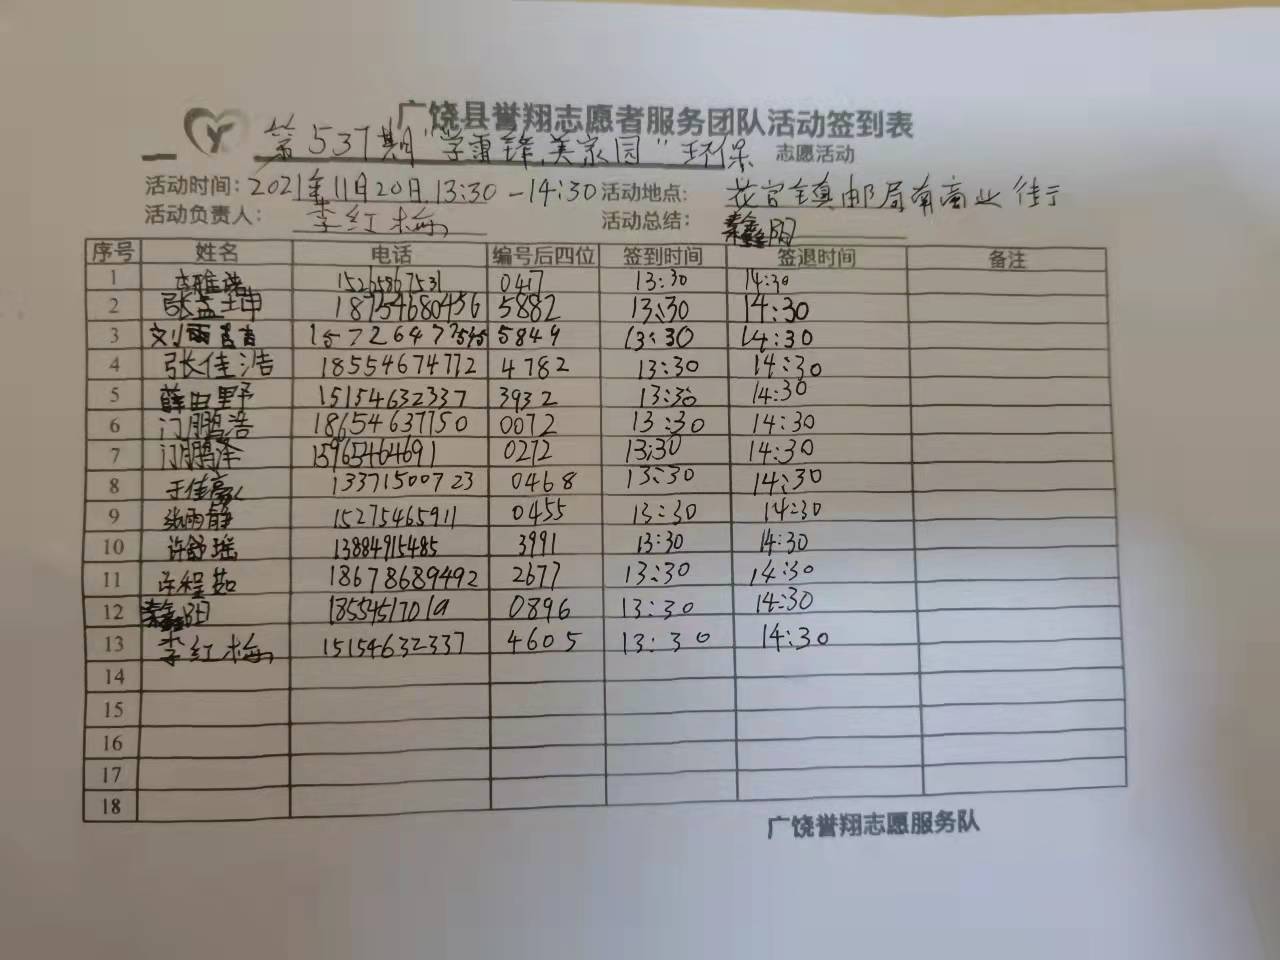 广饶县誉翔志愿者服务团队活动签到表
第537期"学雷锋,美家园"环保 志愿活动
活动时间：2021年11月20日.13:30-14:30 活动地点： 花官镇邮局南商业街
活动负责人： 李红梅 活动总结： 阳
序号 姓名 电话 编号后四位 签到时间 签退时间 备注
1 15265867531 0417 13:30 14:30
2 张孟坤 18754680456 5882 13:30 14:30
3 刘雨 5849 13:30 14:30
4 张佳浩 18554674772 4782 13:30 14:30
5 薛田野 15154632337 3932 13:30 14:30
6 门鹏浩 18654637750 0072 13:30 14:30
7 门鹏泽 15965464691 0272 13:30 14:30
8 于佳 13371500723 0468 13:30 14:30
9 张雨静 15275465911 0455 13:30 14:30
10 许舒瑶 13884915485 3991 13:30 14:30
11 程茹 18678689492 2677 13:30 14:30
12 阳 18554517019 0896 13:30 14:30
13 李红梅 15154632337 4605 13:30 14:30
14
15
16
17
18
广饶誉翔志愿服务队